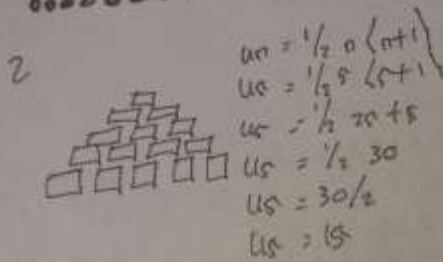 2
un = 1/2 n (n+1)
u5 = 1/2 5 (5+1)
u5 = 1/2 25 +5
u5 = 1/2 30
u5 = 30/2
u5 = 15